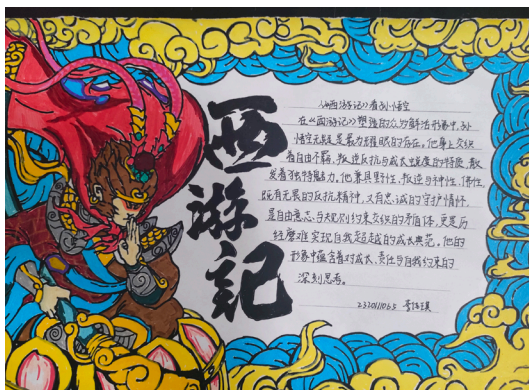 西游记
《西游记》看孙悟空
在《西游记》塑造的众多鲜活形象中,孙
悟空无疑是最为耀眼的存在。他身上交织
着自由不羁、叛逆反抗与成长蜕变的特质,散
发着独特魅力。他兼具野性、叛逆与神性、佛性,
既有无畏的反抗精神,又有忠诚的守护情怀,
是自由意志与天规约束交织的矛盾体,更是历
经磨难实现自我超越的成长典范。他的
形象中蕴含着对成长、责任与自我约束的
深刻思考。
2320111065